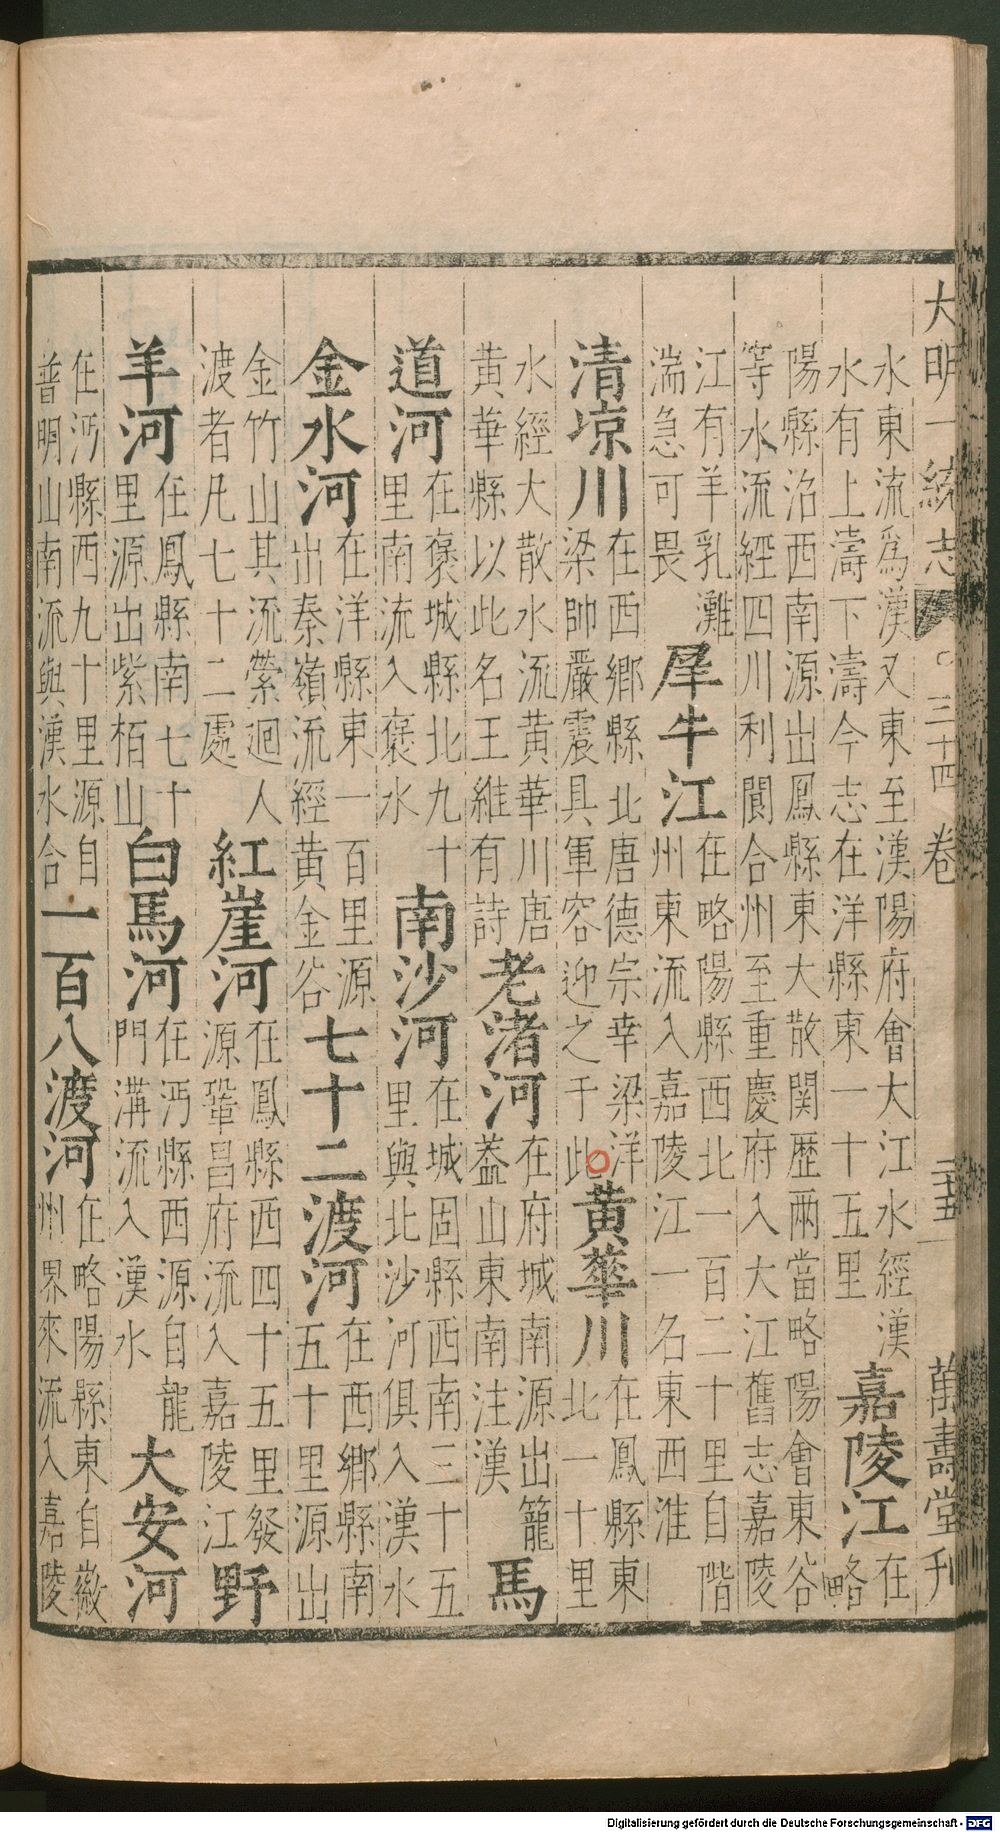 大明一統志 三十四卷 二十五 萬壽堂刊
水東流爲漢又東至漢陽府會大江水經漢
水有上濤下濤今志在洋縣東一十五里
嘉陵江
在
略
陽縣治西南源出鳳縣東大散関歴兩當略陽會東谷
等水流經四川利閬合州至重慶府入大江舊志嘉陵
江有羊乳灘
湍急可畏
犀牛江
在略陽縣西北一百二十里自階
州東流入嘉陵江一名東西淮
清凉川
在西鄉縣北唐德宗幸梁洋
梁帥嚴震具軍容迎之于此
黄華川
在鳳縣東
北一十里
水經大散水流黄華川唐
黄華縣以此名王維有詩
老渚河
在府城南源出籠
葢山東南注漢
馬
道河
在褒城縣北九十
里南流入褒水
南沙河
在城固縣西南三十五
里與北沙河俱入漢水
金水河
在洋縣東一百里源
出秦嶺流經黄金谷
七十二渡河
在西鄉縣南
五十里源出
金竹山其流縈迴人
渡者凡七十二處
紅崖河
在鳳縣西四十五里發
源鞏昌府流入嘉陵江
野
羊河
在鳳縣南七十
里源出紫栢山
白馬河
在沔縣西源自龍
門溝流入漢水
大安河
在沔縣西九十里源自
普明山南流與漢水合
一百八渡河
在略陽縣東自徽
州界來流入嘉陵
Digitalisierung gefördert durch die Deutsche Forschungsgemeinschaft - DFG